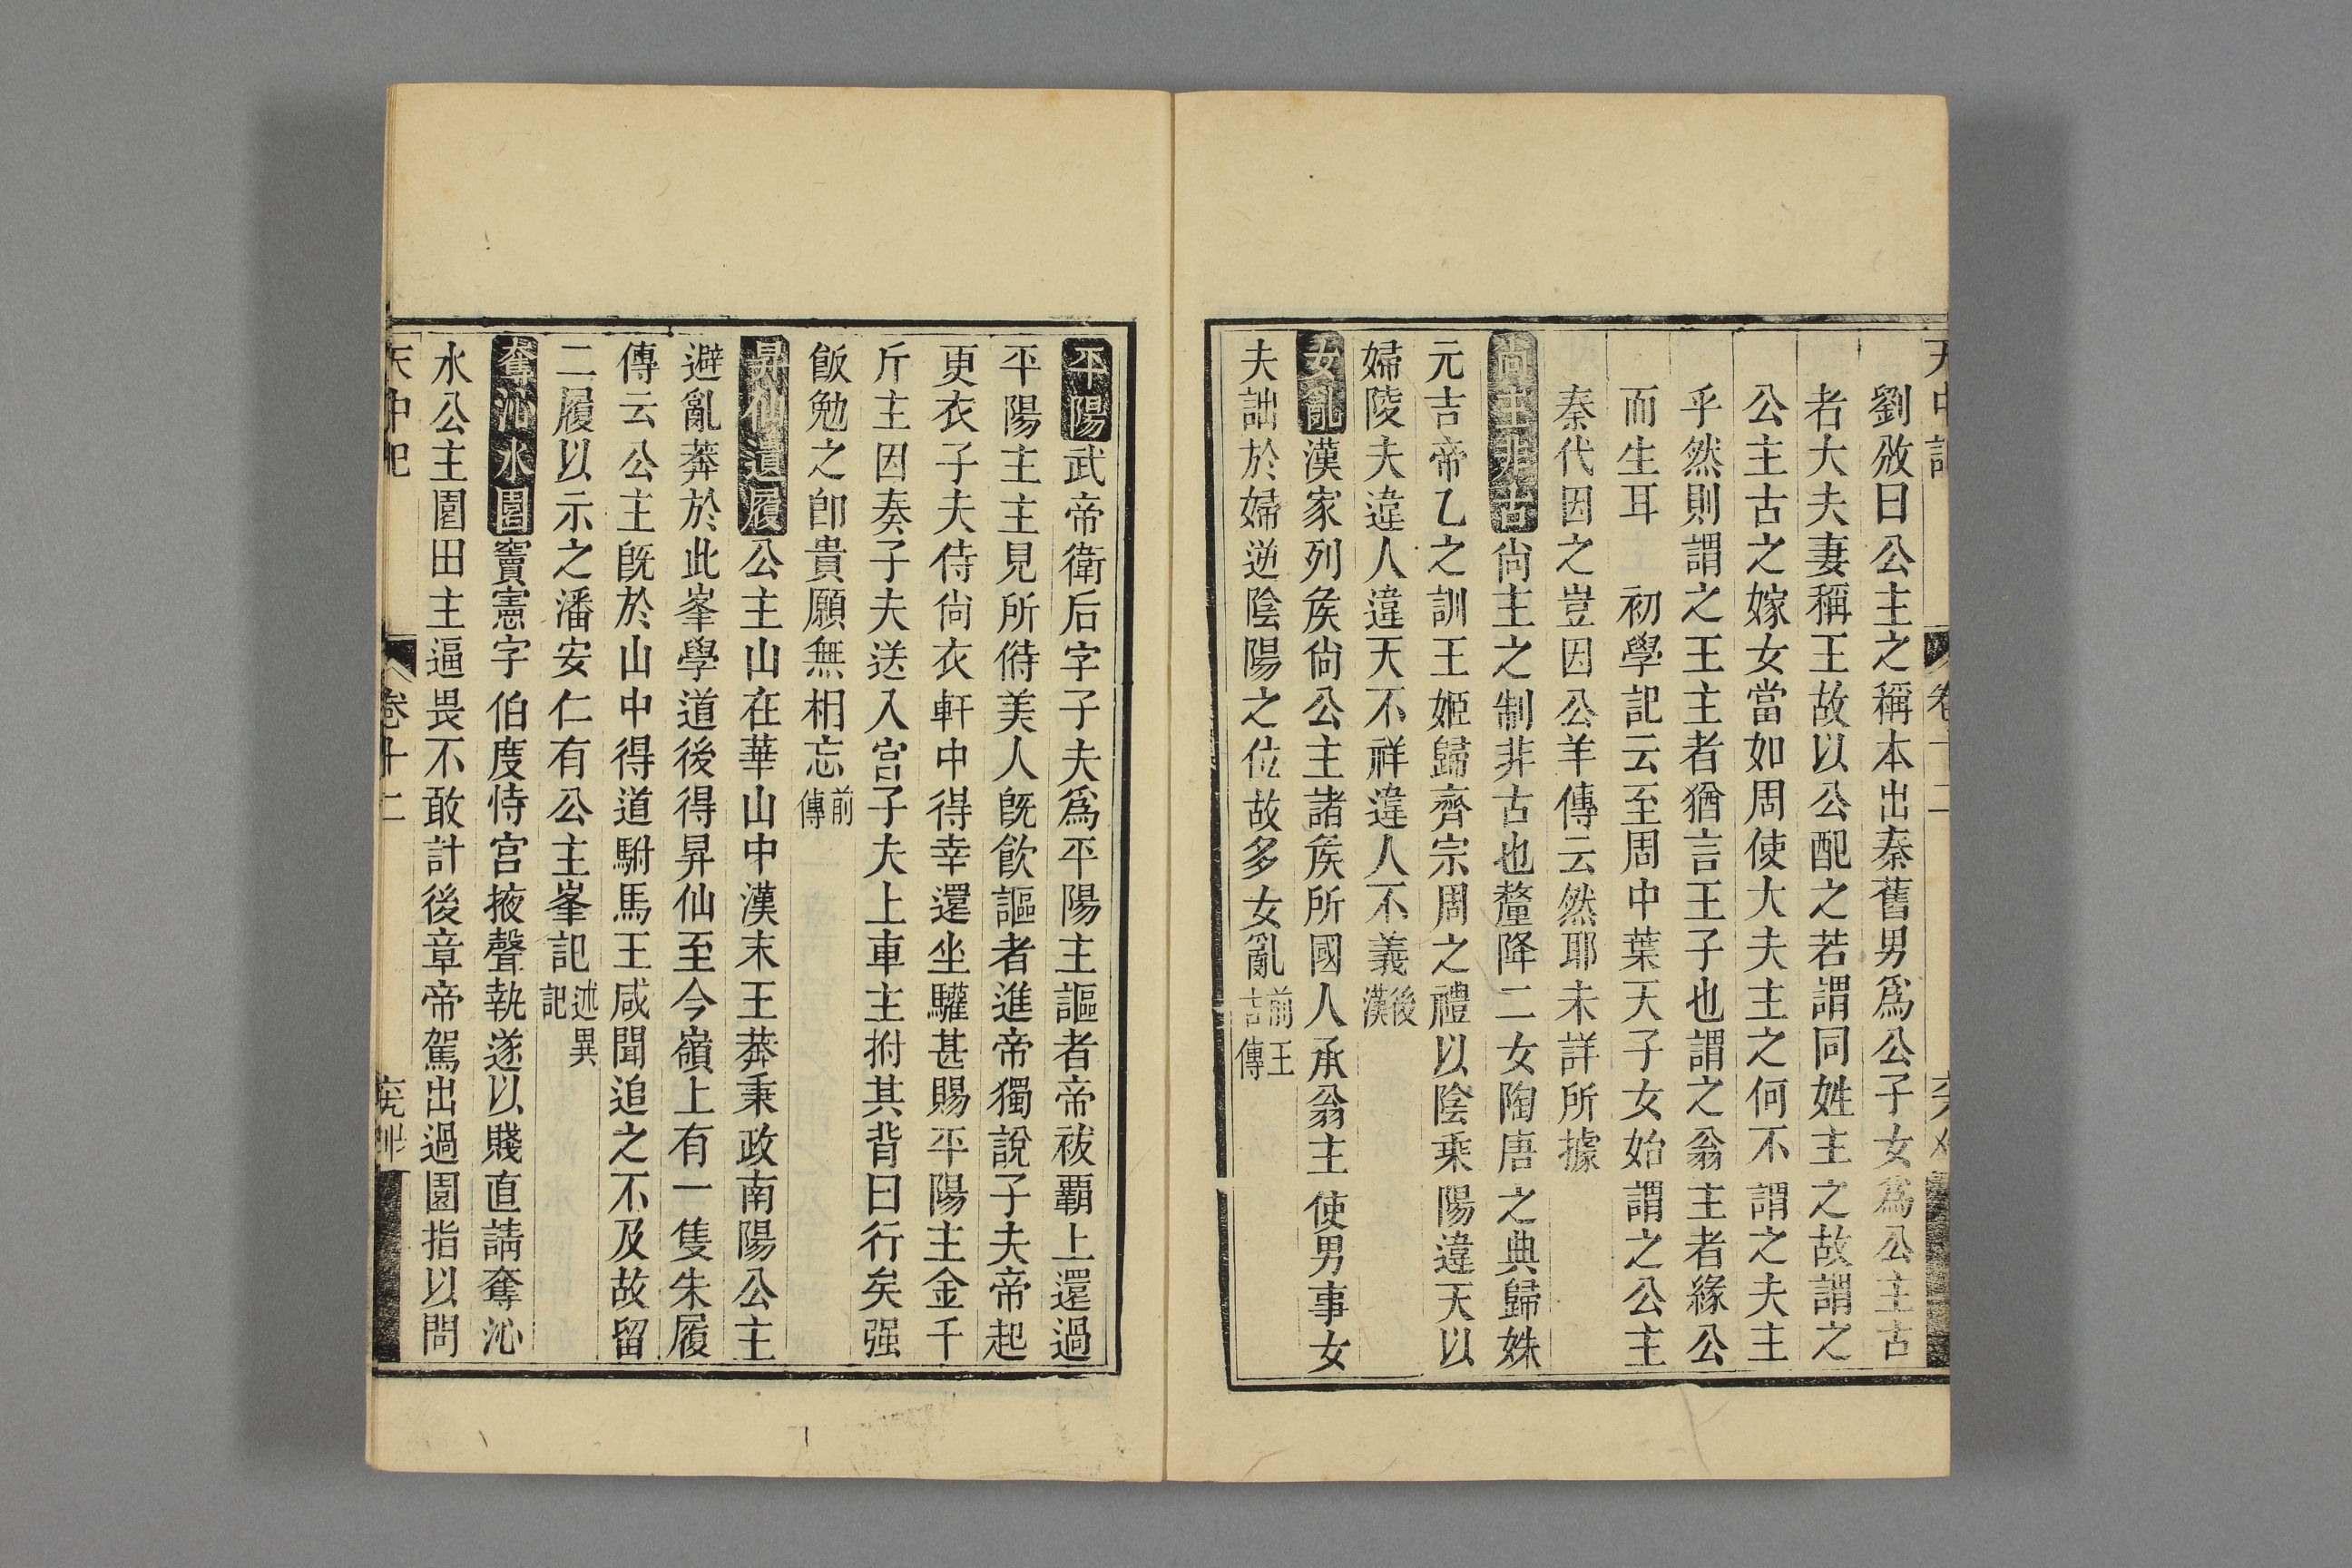 天中記 卷十二
劉攽曰公主之稱本出秦舊男爲公子女爲公主古
者大夫妻稱主故以公配之若謂同姓主之故謂之
公主古之嫁女當如周使大夫主之何不謂之夫主
乎然則謂之王主者猶言王子也謂之翁主者緣公
而生耳 初學記云至周中葉天子女始謂之公主
秦代因之豈因公羊傳云然耶未詳所據
尚主非古尙主之制非古也釐降二女陶唐之典歸姝
元吉帝乙之訓王姬歸齊宗周之禮以陰乗陽違天以
婦陵夫違人違天不祥違人不義後漢
女亂漢家列矦尙公主諸矦所國人承翁主使男事女
夫詘於婦逆陰陽之位故多女亂前王吉傳
平陽武帝衛后字子夫爲平陽主謳者帝祓覇上還過
平陽主主見所偫美人旣飮謳者進帝獨說子夫帝起
更衣子夫侍尙衣軒中得幸還坐驩甚賜平陽主金千
斤主因奏子夫送入宮子夫上車主拊其背曰行矣强
飯勉之卽貴願無相忘前傳
昇仙遺履公主山在華山中漢末王莽秉政南陽公主
避亂莽於此峯學道後得昇仙至今嶺上有一隻朱履
傳云公主旣於山中得道駙馬王咸聞追之不及故留
二履以示之潘安仁有公主峯記述異記
奪沁水園竇憲字伯度恃宮掖聲執遂以賤直請奪沁
水公主園田主逼畏不敢計後章帝駕出過園指以問
天中記 卷十二